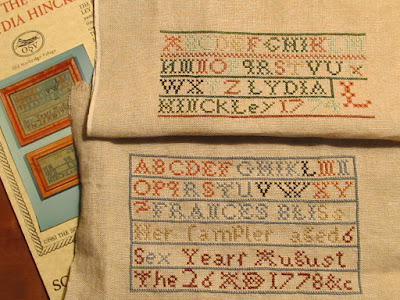 THE
DIA HINCK
Old Sturbridge Village
OSV
ABCDEFGHIK
MNO PQRSTVUX
WX Z LYDIA
HINCKLEY 17
L
ABCDEFGHIKLMN
OPQRSTUVWXY
Z FRANCES BLISS
Her Sampler aged 6
Sex Years August
The 26 AD 1778 &c